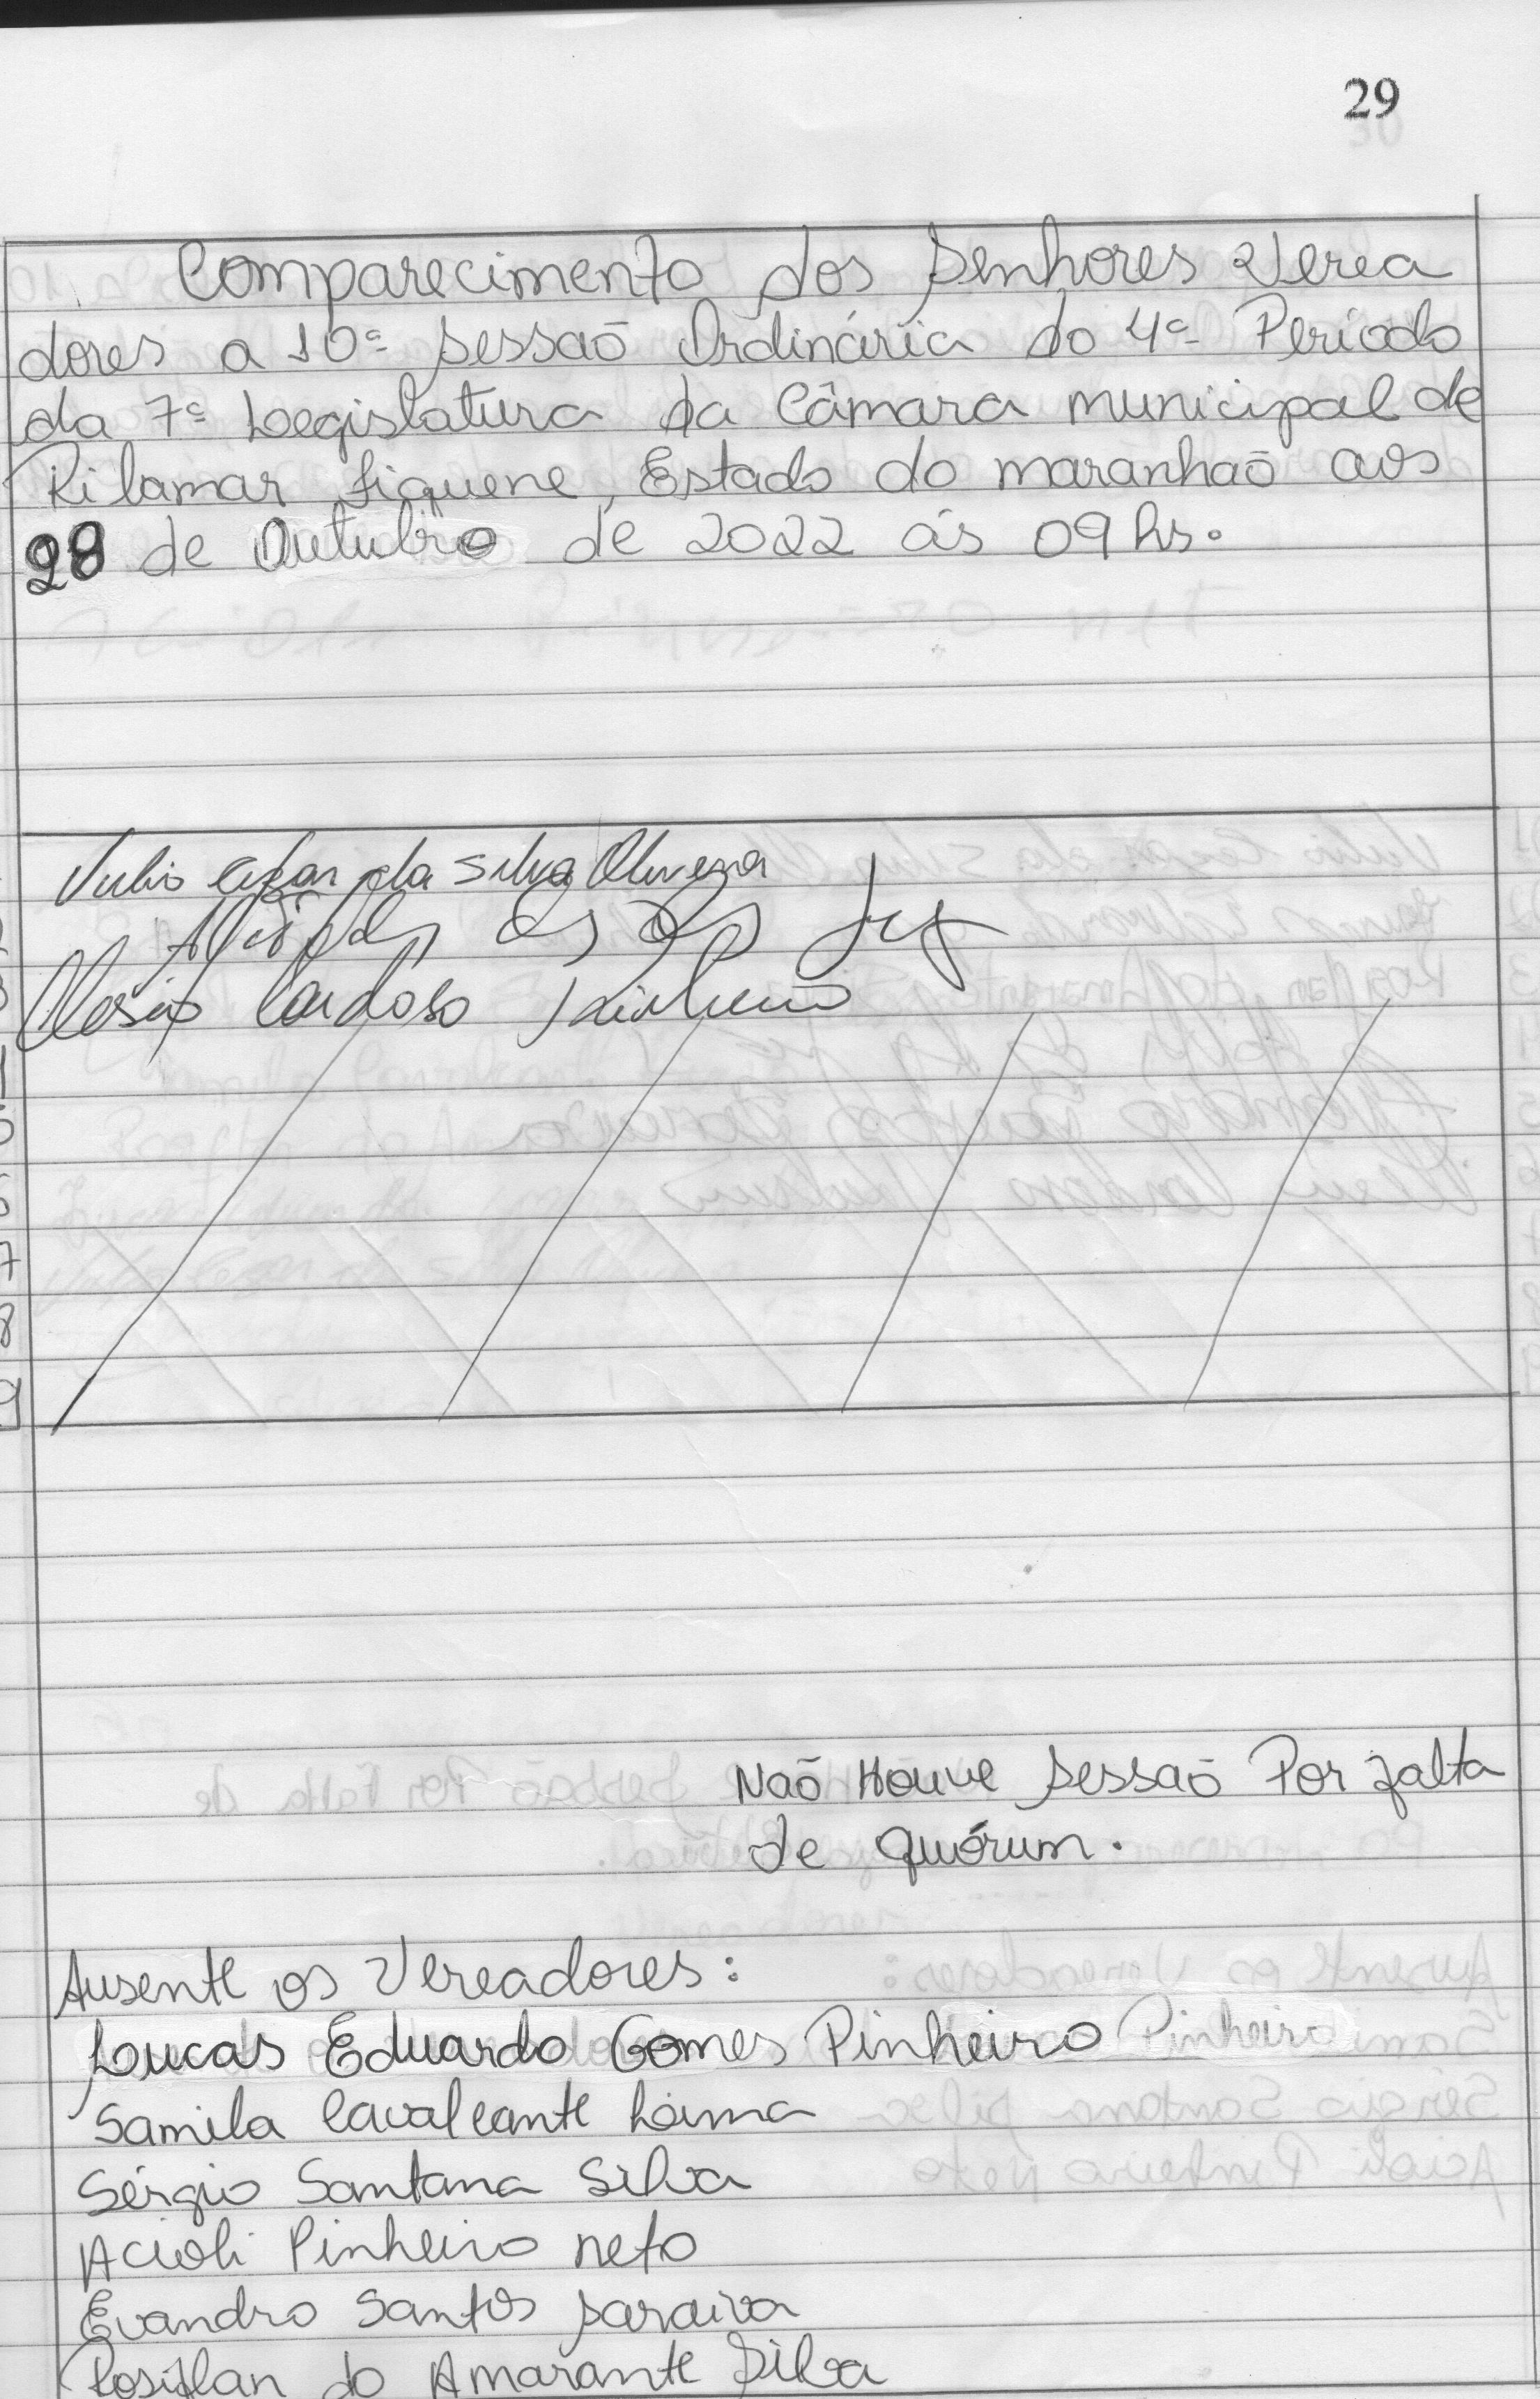 29
Comparecimento dos Senhores Verea
dores a 10ª Sessão Ordinária do 4º Periodo
da 7ª Legislatura da Câmara municipal de
Ribamar Fiquene, Estado do maranhão aos
28 de Outubro de 2022 ás 09 hs.
Julio Cesar da Silva Oliveira
Cardoso
Não Houve Sessão Por falta
de Quórum.
Ausente os Vereadores:
Lucas Eduardo Gomes Pinheiro Pinheiro
Samila Cavalcante Lima
Sérgio Santana Silva
Acioli Pinheiro neto
Evandro Santos Saraiva
Rosiflan do Amarante Silva